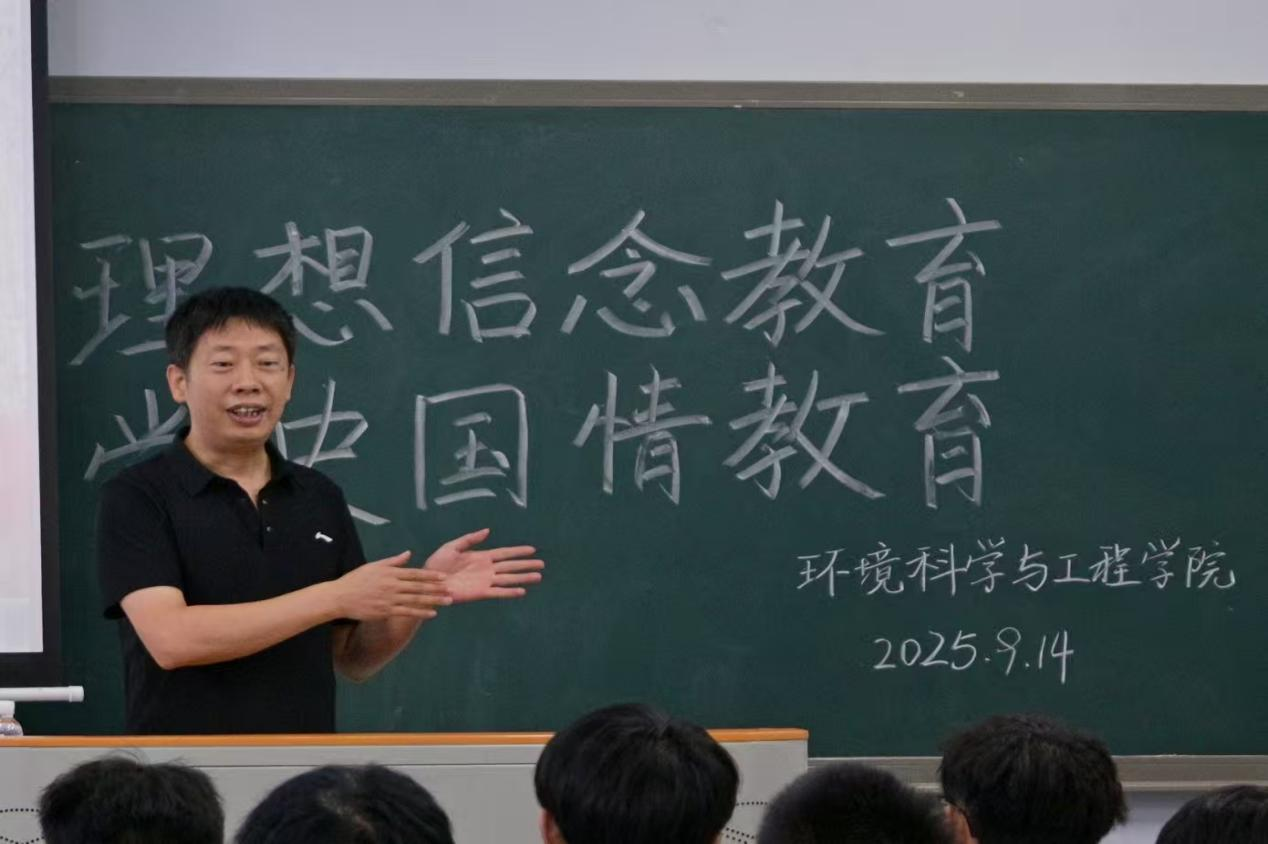 理想信念教育
党史国情教育
环境科学与工程学院
2025.9.14